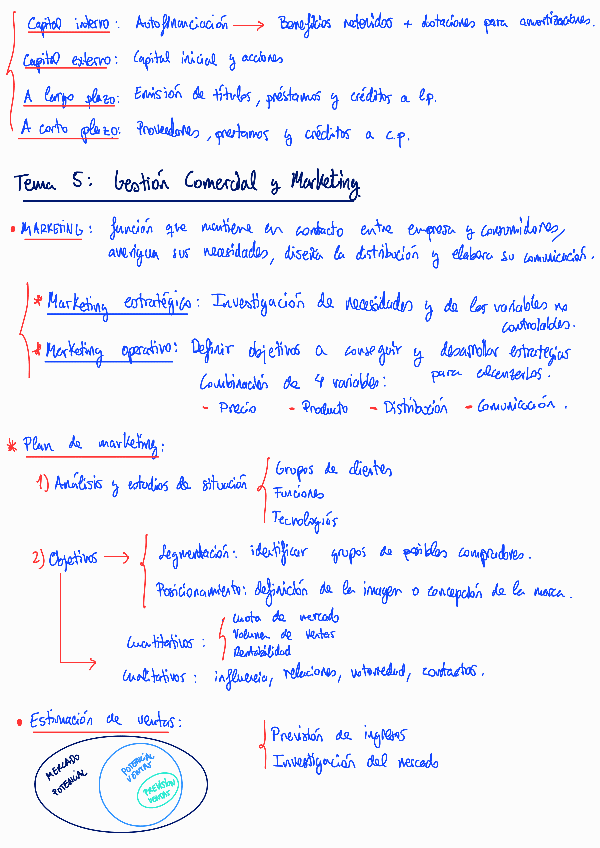 Capital interno: Autofinanciación → Beneficios retenidos + dotaciones para amortizaciones.
Capital externo: Capital inicial y acciones
A largo plazo: Emisión de títulos, préstamos y créditos a l.p.
A corto plazo: Proveedores, prestamos y créditos a c.p.
Tema 5: Gestión Comercial y Marketing
• MARKETING: función que mantiene en contacto entre empresa y consumidores,
averigua sus necesidades, diseña la distribución y elabora su comunicación.
* Marketing estratégico: Investigación de necesidades y de las variables no
controlables.
* Marketing operativo: Definir objetivos a conseguir y desarrollar estrategias
para alcanzarlos.
Combinación de 4 variables:
- Precio - Producto - Distribución - Comunicación.
* Plan de marketing:
1) Análisis y estudios de situación
Grupos de clientes
Funciones
Tecnologías
2) Objetivos →
Segmentación: identificar grupos de posibles compradores.
Posicionamiento: definición de la imagen o concepción de la marca.
Cuantitativos:
Cuota de mercado
Volumen de ventas
Rentabilidad
Cualitativos: influencia, relaciones, notoriedad, contactos.
• Estimación de ventas:
Previsión de ingresos
Investigación del mercado
MERCADO
POTENCIAL
POTENCIAL
VENTAS
PREVISION
VENTAS